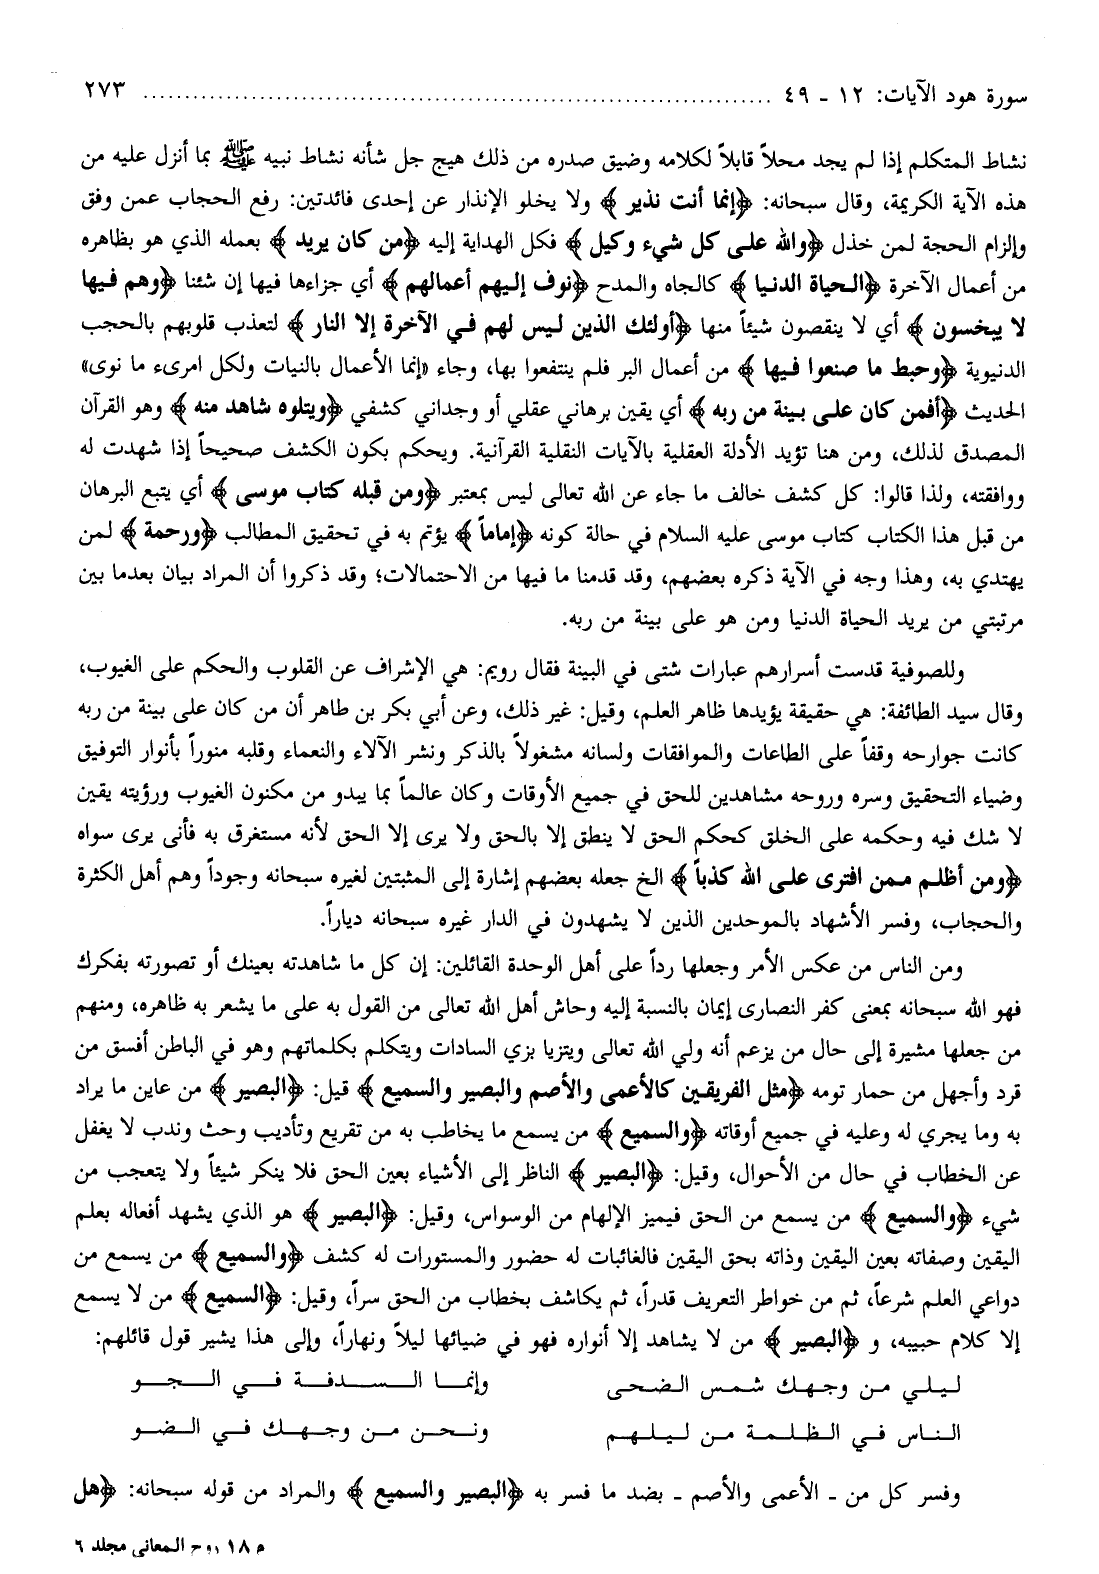 سورة هود الآيات: ١٢ - ٤٩ ........................................................................ ٢٧٣
نشاط المتكلم إذا لم يجد محلاً قابلاً لكلامه وضيق صدره من ذلك هيج جل شأنه نشاط نبيه ﷺ بما أنزل عليه من
هذه الآية الكريمة، وقال سبحانه: ﴿إنما أنت نذير﴾ ولا يخلو الإنذار عن إحدى فائدتين: رفع الحجاب عمن وفق
وإلزام الحجة لمن خذل ﴿والله على كل شيء وكيل﴾ فكل الهداية إليه ﴿من كان يريد﴾ بعمله الذي هو بظاهره
من أعمال الآخرة ﴿الحياة الدنيا﴾ كالجاه والمدح ﴿نوف إليهم أعمالهم﴾ أي جزاءها فيها إن شئنا ﴿وهم فيها
لا يبخسون﴾ أي لا ينقصون شيئاً منها ﴿أولئك الذين ليس لهم في الآخرة إلا النار﴾ لتعذب قلوبهم بالحجب
الدنيوية ﴿وحبط ما صنعوا فيها﴾ من أعمال البر فلم ينتفعوا بها، وجاء «إنما الأعمال بالنيات ولكل امرىء ما نوى»
الحديث ﴿أفمن كان على بينة من ربه﴾ أي يقين برهاني عقلي أو وجداني كشفي ﴿ويتلوه شاهد منه﴾ وهو القرآن
المصدق لذلك، ومن هنا تؤيد الأدلة العقلية بالآيات النقلية القرآنية. ويحكم بكون الكشف صحيحاً إذا شهدت له
ووافقته، ولذا قالوا: كل كشف خالف ما جاء عن الله تعالى ليس بمعتبر ﴿ومن قبله كتاب موسى﴾ أي يتبع البرهان
من قبل هذا الكتاب كتاب موسى عليه السلام في حالة كونه ﴿إماماً﴾ يؤتم به في تحقيق المطالب ﴿ورحمة﴾ لمن
يهتدي به، وهذا وجه في الآية ذكره بعضهم، وقد قدمنا ما فيها من الاحتمالات؛ وقد ذكروا أن المراد بيان بعدما بين
مرتبتي من يريد الحياة الدنيا ومن هو على بينة من ربه.
وللصوفية قدست أسرارهم عبارات شتى في البينة فقال رويم: هي الإشراف عن القلوب والحكم على الغيوب،
وقال سيد الطائفة: هي حقيقة يؤيدها ظاهر العلم، وقيل: غير ذلك، وعن أبي بكر بن طاهر أن من كان على بينة من ربه
كانت جوارحه وقفاً على الطاعات والموافقات ولسانه مشغولاً بالذكر ونشر الآلاء والنعماء وقلبه منوراً بأنوار التوفيق
وضياء التحقيق وسره وروحه مشاهدين للحق في جميع الأوقات وكان عالماً بما يبدو من مكنون الغيوب ورؤيته يقين
لا شك فيه وحكمه على الخلق كحكم الحق لا ينطق إلا بالحق ولا يرى إلا الحق لأنه مستغرق به فأنى يرى سواه
﴿ومن أظلم ممن افترى على الله كذباً﴾ الخ جعله بعضهم إشارة إلى المثبتين لغيره سبحانه وجوداً وهم أهل الكثرة
والحجاب، وفسر الأشهاد بالموحدين الذين لا يشهدون في الدار غيره سبحانه دياراً.
ومن الناس من عكس الأمر وجعلها رداً على أهل الوحدة القائلين: إن كل ما شاهدته بعينك أو تصورته بفكرك
فهو الله سبحانه بمعنى كفر النصارى إيمان بالنسبة إليه وحاش أهل الله تعالى من القول به على ما يشعر به ظاهره، ومنهم
من جعلها مشيرة إلى حال من يزعم أنه ولي الله تعالى ويتزيا بزي السادات ويتكلم بكلماتهم وهو في الباطن أفسق من
قرد وأجهل من حمار تومه ﴿مثل الفريقين كالأعمى والأصم والبصير والسميع﴾ قيل: ﴿البصير﴾ من عاين ما يراد
به وما يجري له وعليه في جميع أوقاته ﴿والسميع﴾ من يسمع ما يخاطب به من تقريع وتأديب وحث وندب لا يغفل
عن الخطاب في حال من الأحوال، وقيل: ﴿البصير﴾ الناظر إلى الأشياء بعين الحق فلا ينكر شيئاً ولا يتعجب من
شيء ﴿والسميع﴾ من يسمع من الحق فيميز الإلهام من الوسواس، وقيل: ﴿البصير﴾ هو الذي يشهد أفعاله بعلم
اليقين وصفاته بعين اليقين وذاته بحق اليقين فالغائبات له حضور والمستورات له كشف ﴿والسميع﴾ من يسمع من
دواعي العلم شرعاً، ثم من خواطر التعريف قدراً، ثم يكاشف بخطاب من الحق سراً، وقيل: ﴿السميع﴾ من لا يسمع
إلا كلام حبيبه، و ﴿البصير﴾ من لا يشاهد إلا أنواره فهو في ضيائها ليلاً ونهاراً، وإلى هذا يشير قول قائلهم:
ليلي من وجهك شمس الضحى وإنما السدفة في الجو
الناس في الظلمة من ليلهم ونحن من وجهك في الضو
وفسر كل من - الأعمى والأصم - بضد ما فسر به ﴿البصير والسميع﴾ والمراد من قوله سبحانه: ﴿هل
م ١٨ روح المعاني مجلد ٦